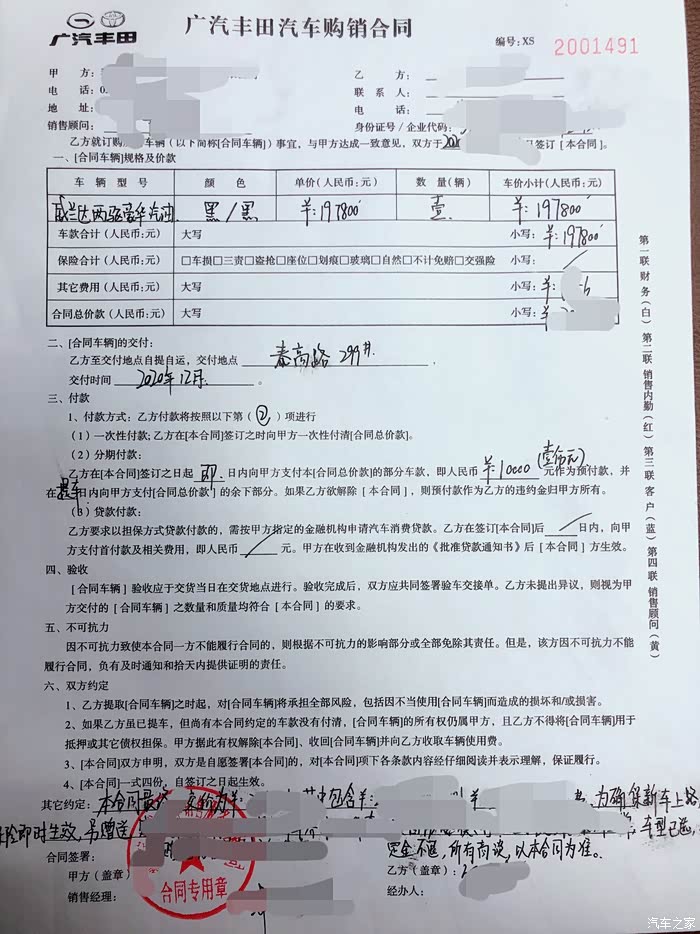 广汽丰田
广汽丰田汽车购销合同
编号: XS 2001491
甲 方:
乙 方:
电 话: 0
联 系 人:
地 址:
电 话:
销售顾问:
身份证号/企业代码:
乙方就订购 车辆(以下简称[合同车辆])事宜,与甲方达成一致意见,双方于 202 日签订[本合同]。
一、[合同车辆]规格及价款
车 辆 型 号 颜 色 单价(人民币:元) 数 量(辆) 车价小计(人民币:元)
威兰达两驱豪华汽油 黑/黑 ¥:197800 壹 ¥:197800
车款合计(人民币:元) 大写 小写: ¥:197800
保险合计(人民币:元) □车损□三责□盗抢□座位□划痕□玻璃□自然□不计免赔□交强险 小写: /
其它费用(人民币:元) 大写 小写: ¥
合同总价款(人民币:元) 大写 小写: ¥
二、[合同车辆]的交付:
乙方至交付地点自提自运,交付地点 春高路299# 。
交付时间 2020年12月 。
三、付款
1、付款方式:乙方付款将按照以下第(2)项进行
(1)一次性付款;乙方在[本合同]签订之时向甲方一次性付清[合同总价款]。
(2)分期付款:
乙方在[本合同]签订之日起 即 日内向甲方支付本[合同总价款]的部分车款,即人民币 ¥:10000 (壹佰元) 元作为预付款,并
在 提车 日内向甲方支付[合同总价款]的余下部分。如果乙方欲解除[本合同],则预付款作为乙方的违约金归甲方所有。
(3)贷款付款:
乙方要求以担保方式贷款付款的,需按甲方指定的金融机构申请汽车消费贷款。乙方在签订[本合同]后 / 日内,向甲
方支付首付款及相关费用,即人民币 / 元。甲方在收到金融机构发出的《批准贷款通知书》后[本合同]方生效。
四、验收
[合同车辆]验收应于交货当日在交货地点进行。验收完成后,双方应共同签署验车交接单。乙方未提出异议,则视为甲
方交付的[合同车辆]之数量和质量均符合[本合同]的要求。
五、不可抗力
因不可抗力致使本合同一方不能履行合同的,则根据不可抗力的影响部分或全部免除其责任。但是,该方因不可抗力不能
履行合同,负有及时通知和拾天内提供证明的责任。
六、双方约定
1、乙方提取[合同车辆]之时起,对[合同车辆]将承担全部风险,包括因不当使用[合同车辆]而造成的损坏和/或损害。
2、如果乙方虽已提车,但尚有本合同约定的车款没有付清,[合同车辆]的所有权仍属甲方,且乙方不得将[合同车辆]用于
抵押或其它债权担保。甲方据此有权解除[本合同]、收回[合同车辆]并向乙方收取车辆使用费。
3、[本合同]双方申明,双方是自愿签署[本合同]的,对[本合同]项下各条款内容经仔细阅读并表示理解,保证履行。
4、[本合同]一式四份,自签订之日起生效。
其它约定: 本合同最 价为 包含¥: ¥ 为确保新车上路
险即时生效,另赠送 车型已选,
定金不退,所有商谈,以本合同为准。
合同签署:
甲方(盖章)
乙方(盖章):
销售经理:
经办人:
合同专用章
第一联 财务(白) 第二联 销售内勤(红) 第三联 客户(蓝) 第四联 销售顾问(黄)
汽车之家